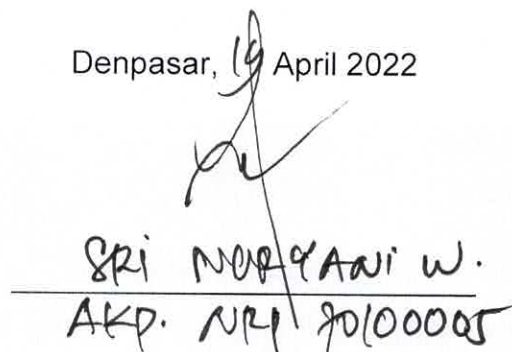 Denpasar, 19 April 2022
SRI NURYANI W.
AKP. NRP 70100005